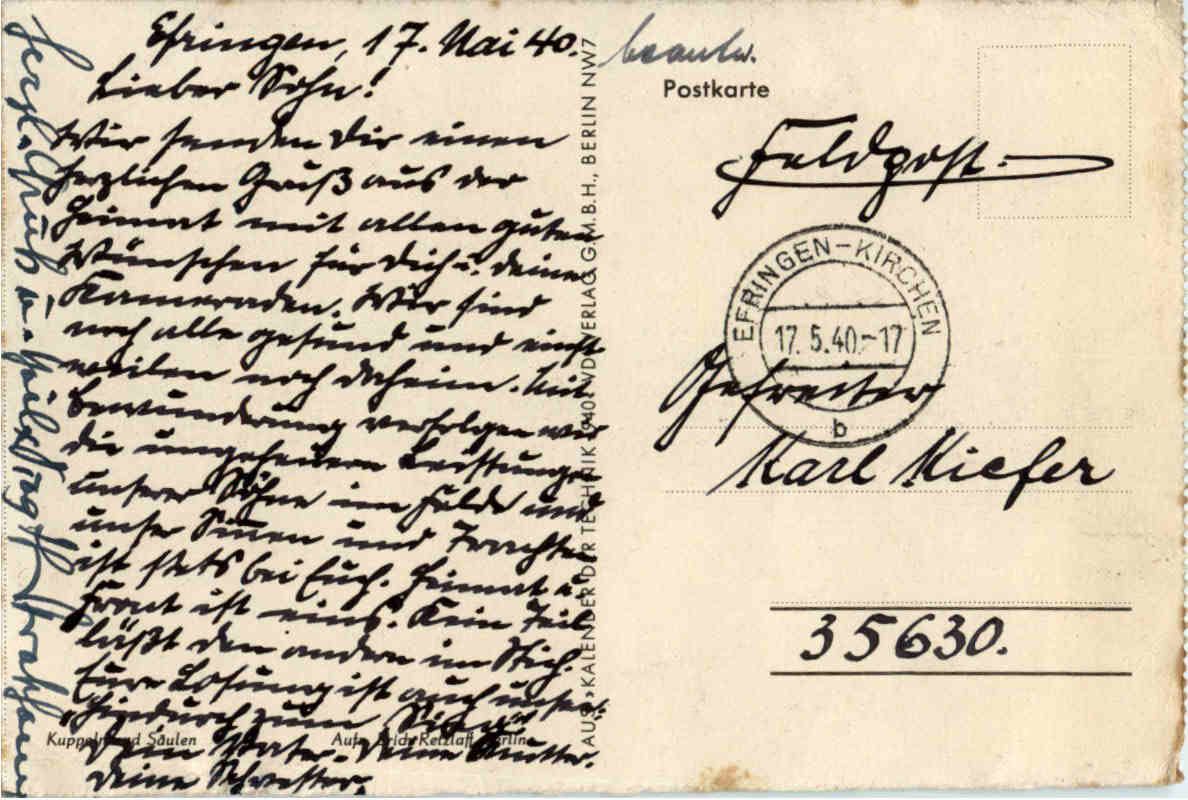 Efringen, 17. Mai 40.
Lieber Sohn!
Wir senden Dir einen
herzlichen Gruß aus der
Heimat mit allen guten
Wünschen für Dich u. deine
Kameraden. Wir sind
noch alle gesund und
weilen noch daheim. Mit
Bewunderung verfolgen wir
die ungeheuren Leistungen
unserer Söhne im Felde und
unser Sinnen und Trachten
ist stets bei Euch. Heimat u.
Front ist eins. Kein Teil
läßt den andern im Stich.
Eure Losung ist auch unsere:
„Hindurch zum Siege"
Dein Vater. Deine Mutter.
Deine Schwester.
Herzl. Gruß u. Heil
Kuppeln und Säulen
Aufn. Erich Retzlaff, Berlin
AUS »KALENDER DER TECHNIK 1940« VDI-VERLAG G.M.B.H., BERLIN NW7
beantw.
Postkarte
Feldpost.
EFRINGEN-KIRCHEN
17.5.40.-17
b
Gefreiter
Karl Kiefer
35630.